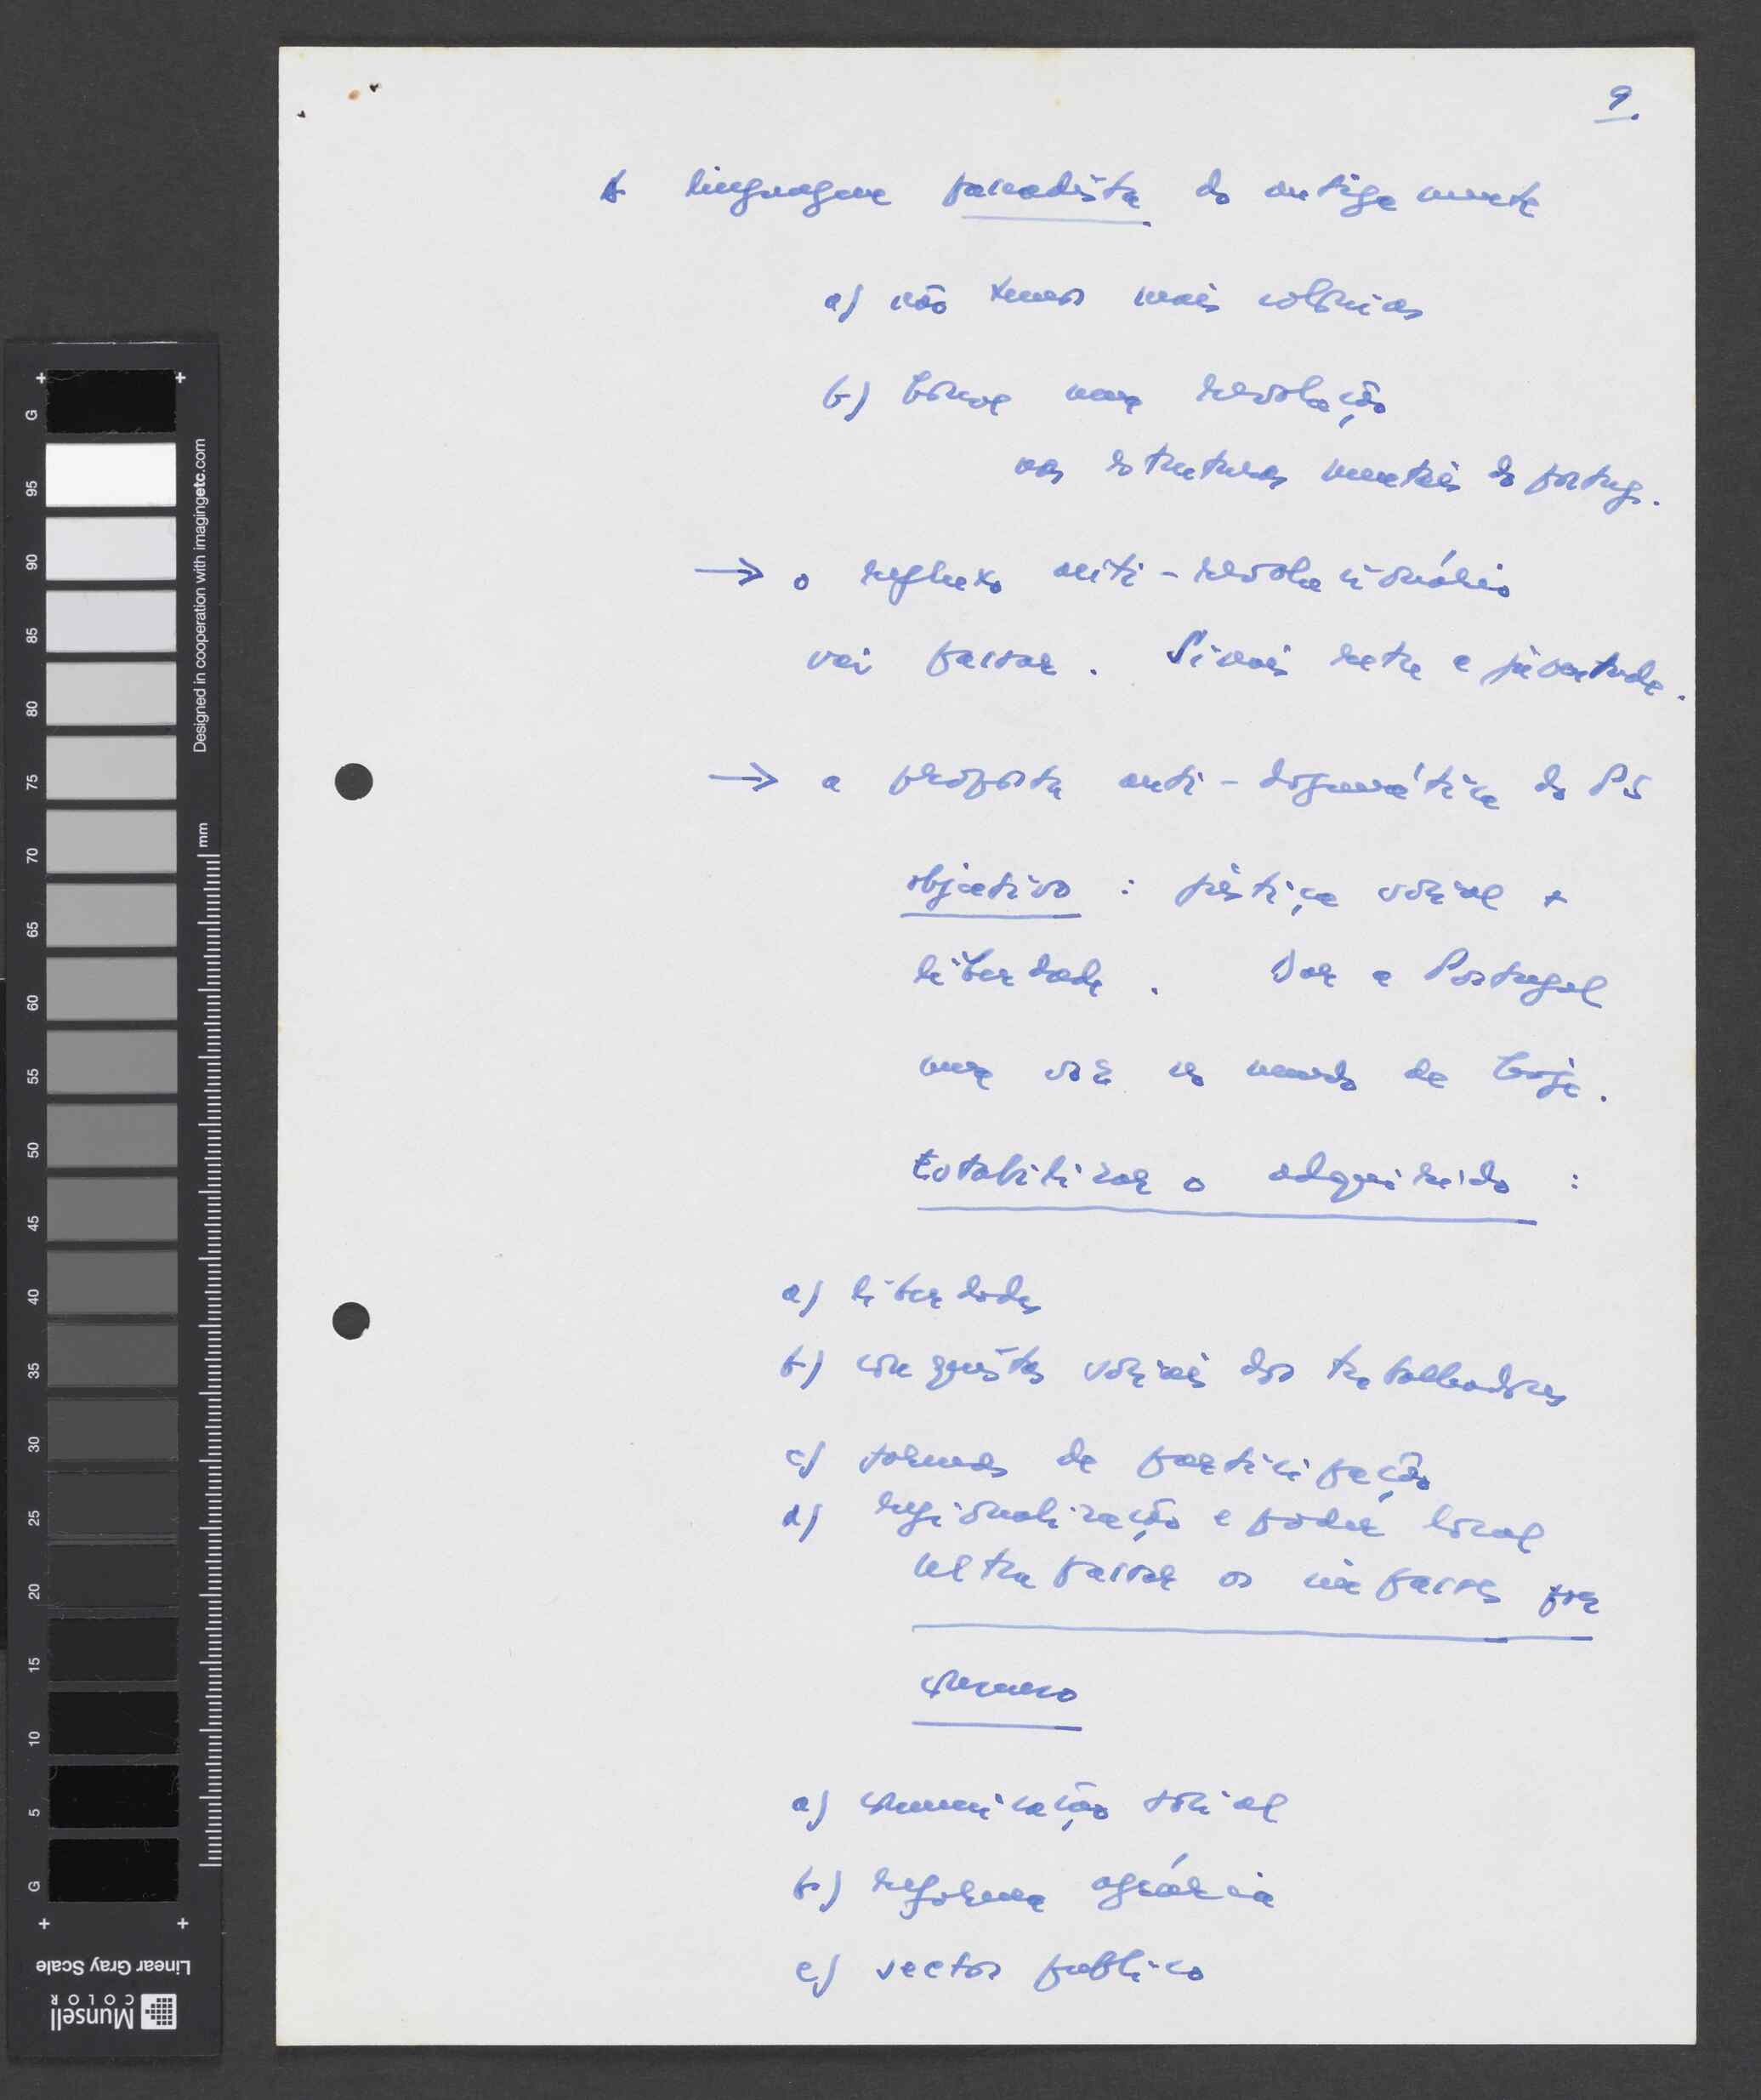 9.
A linguagem passadista do antigamente
a) não temos mais colónias
b) houve uma revolução
nas estruturas mentais do portug.
→ o reflexo anti-revolucionário
vai passar. Sinais e juventude.
→ a proposta anti-dogmática do PS
objectivo : justiça social +
liberdade. Dar a Portugal
uma voz no mundo de hoje.
Estabilizar o adquirido :
a) liberdades
b) conquistas sociais dos trabalhadores
c) formas de participação
d) regionalização e poder local
ultrapassar os impasses por
consenso
a) comunicação social
b) reforma agrária
c) sector publico
G
95
90
85
80
75
70
65
60
55
50
45
40
35
30
25
20
15
10
5
G
Designed in cooperation with imagingetc.com
mm
Linear Gray Scale
Munsell
COLOR